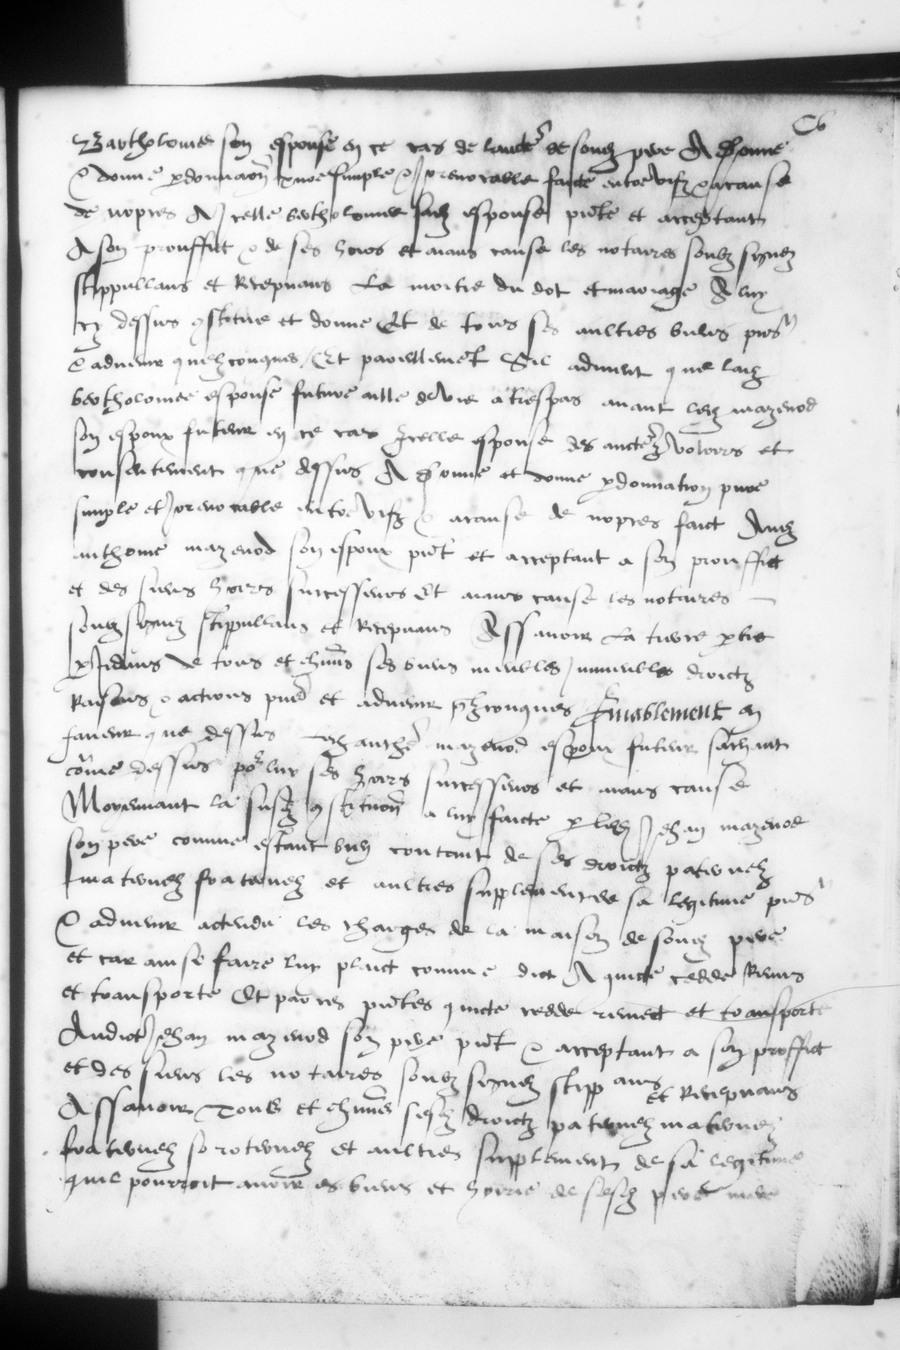 C6
Bartholomee son espouse en ce cas de laucte de sond pere A donne
& donne p donnaon pure simple & Irrevocable faicte entre vifz & a cause
de nopces A Icelle bertholomee sad espouse pnte et acceptant
A son prouffict & de ses hoirs et aians cause les notaires soubz signez
stippullans et Recepvans La moitie du dot et mariage A luy
cy dessus constitue et donne Et de tous ses aultres biens pns
& advenir quelzconques / Et pareillement Sil advient que lad
bertholomee espouse future aille de vie a trespas avant led mazenod
son espoux futeur en ce cas Icelle espouse des auctez voloirs et
consentement que dessus A donne et donne p donnation pure
simple et Irrevocable entre vifz & a cause de nopces faict Aud
anthoine mazenod son espoux pnt et acceptant a son prouffict
et des siens hoirs successeurs Et aians cause les notaires
soubz signez stipullans et Recepvans Assavoir La tierce ptie
p Indivis de tous et chuns ses biens meubles / immeubles droictz
Raisons & actions pns et advenir qlzconques Finablement en
faveur que dessus led anthe mazenod espoux futeur saichant
come dessus por luy ses hoirs successeurs et aians cause
Moyennant la susd constitution a luy faicte p led Jehan mazenod
son pere comme estant bien contant de ses droictz paternelz
maternelz fraternelz et aultres supplement de sa legitime pns
& advenir actendu les charges de la maison de sond pere
et car ainsi faire luy plaict comme dict A quicte cedde Remis
et transporte Et par ces pntes quicte cedde remect et transporte
Audict Jehan mazenod son pere pnt & acceptant a son proffict
et des siens les notaires soubz signez stipp ans et Recepvans
Assavoir Tous et chuns sesd droictz paternelz maternelz
fraternelz sororternelz et aultres supplement de sa legitime
quil pourroit avoir es biens et hoirie de sesd pere mere